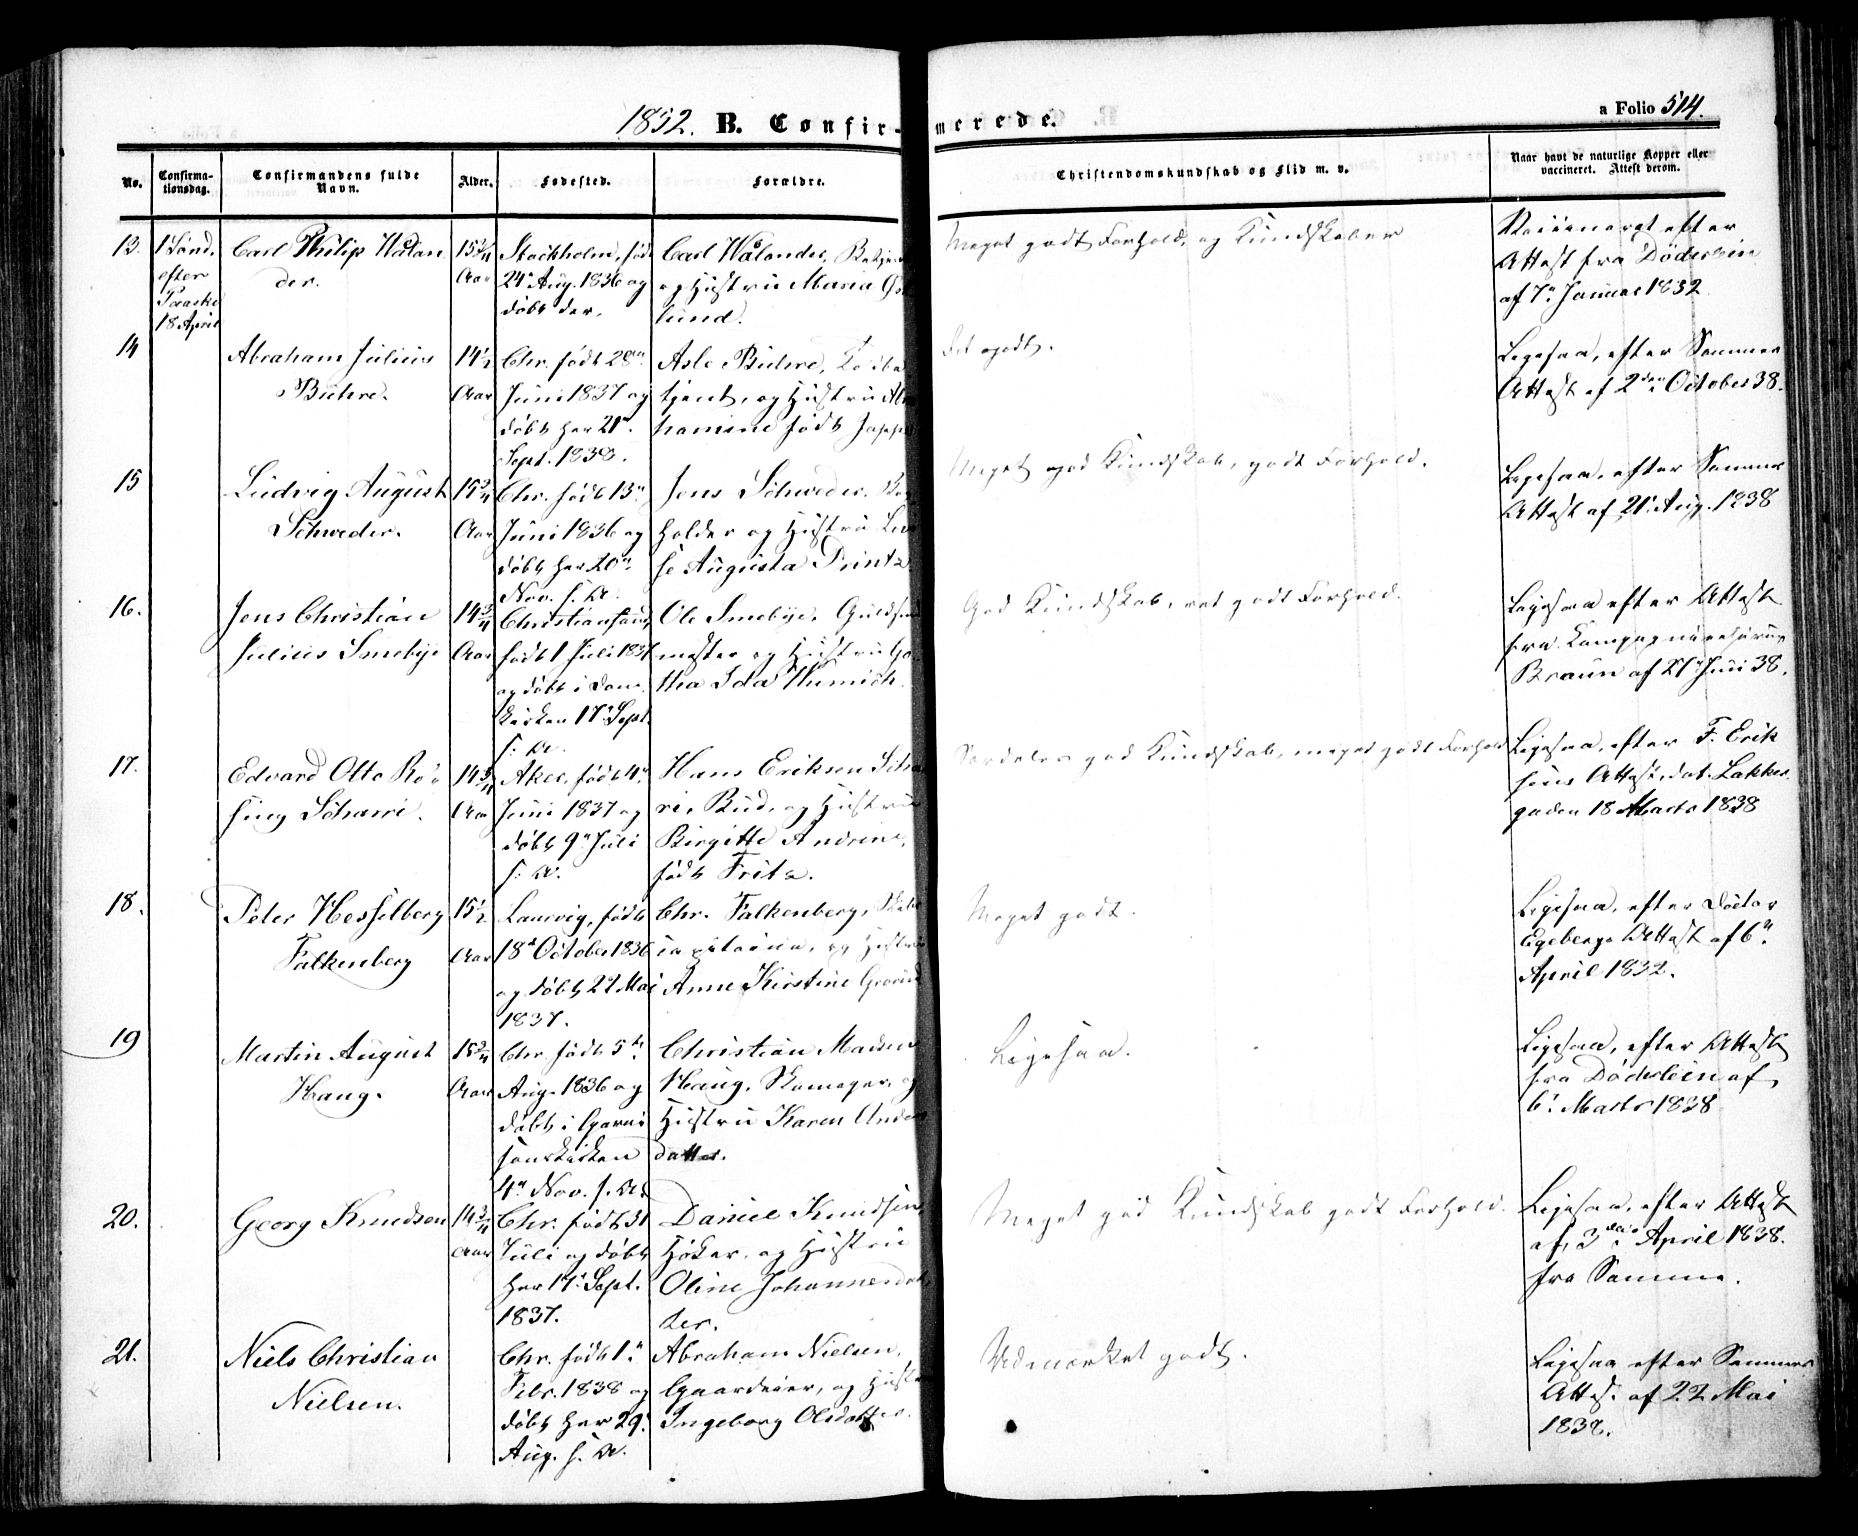 1852. B. Confirmerede.
a Folio 514.
No.
Confirmationsdag.
Confirmandens fulde Navn.
Alder.
Fødested.
Forældre.
Christendomskundskab og Flid m. v.
Naar havt de naturlige Kopper eller vaccineret. Attest derom.
13.
1 Sønd.
efter
Paaske
18 April
Carl Philip Wålan
der.
15 3/4
Aar
Stockholm, født
24 Aug. 1836 og
døbt der.
Carl Wålander,
og Hustru Maria
lund.
Meget godt Forhold, og Kundskaber
Vaccineret efter
Attest fra Døderlein
af 7. Januar 1832
14
Abraham Julius
Buhre.
14 1/2
Aar
Chr. født 28
Juni 1837 og
døbt her 21
Sept. 1838.
Asle Buhre, Toldbe
tjent, og Hustru
hamine født
godt.
Ligesaa, efter Sammes
Attest af 2den October 38.
15
Ludvig August
Schweder.
15 3/4
Aar
Chr. født 13
Juni 1836 og
døbt her 20
Nov. s. A.
Jens Schweder, Bog
holder og Hustru
se Augusta Printz
Meget god Kundskab, godt Forhold.
Ligesaa, efter Sammes
Attest af 21 Aug. 1838
16.
Jens Christian
Julius Smebye
14 3/4
Aar
Christiansand,
født 1 Juli 1837
og døbt i Dom
kirken 17 Sept.
s. A.
Ole Smebye, Guldsmed
mester og Hustru
thea Ida Thumich.
God Kundskab, ret godt Forhold.
Ligesaa efter Attest
fra Compagniechirurg
Braun af 27 Juni 38.
17.
Edvard Otto Rø
sing Scharri.
14 3/4
Aar
Aker, født 4
Juni 1837 og
døbt 9 Juli
s. A.
Hans Eriksen Scha
ri, Bud, og Hustru
Birgitte Andrine,
født Fritz.
Særdeles god Kundskab, meget godt Forhold
Ligesaa, efter F. Erik
sens Attest, dat. Lakke
gaden 18 Marts 1838
18.
Peter Hesselberg
Falkenberg
15 1/2
Aar
Laurvig, født
18 October 1836
og døbt 22 Mai
1837.
Chr. Falkenberg, Skibs
capitaine, og Hustru
Anne Kirstine
Meget godt.
Ligesaa, efter Doctor
Egebergs Attest af 6
April 1832.
19
Martin August
Haug.
15 3/4
Aar
Chr. født 5
Aug. 1836 og
døbt i Garni
sonskirken
4 Nov. s. A.
Christian Madsen
Haug, Skomager, og
Hustru Karen Anders
datter.
Ligesaa.
Ligesaa, efter Attest
fra Døderlein af
6. Marts 1838
20.
Georg Knudsen
14 3/4
Aar
Chr. født 31
Juli og døbt
her 17 Sept.
1837.
Daniel Knudsen,
Høker, og Hustru
Oline Johannesdat
ter.
Meget god Kundskab godt Forhold.
Ligesaa, efter Attest
af 3die April 1838.
fra Samme.
21.
Niels Christian
Nielsen.
Chr. født 1
Febr. 1838 og
døbt her 29
Aug. s. A.
Abraham Nielsen,
Gaardeier, og Hustru
Ingeborg Olsdatter.
Udmærket godt.
Ligesaa efter Sammes
Attest af 22 Mai
1838.